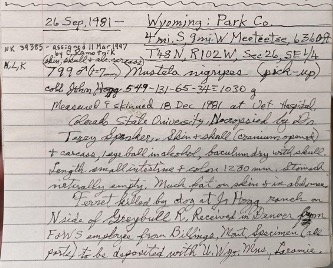 26 Sep. 1981— Wyoming: Park Co.
4 mi. S, 9 mi. W Meeteetse, 6360 ft
NK 39385 - assigned 11 Mar 1997 T48N, R102W, Sec 26, SE 1/4
by C. Ramotnik
skin, skull + alc. carcass
799 Mustela nigripes (pick-up)
coll. John Hogg 549-131-65-34=1030 g
Measured & skinned 18 Dec. 1981 at Vet Hospital,
Colorado State University. Necropsied by Dr.
Terry Spraker. Skin + skull (cranium opened)
& carcass, 1 eyeball in alcohol, baculum dry with skull.
Length small intestine + colon 1230 mm. Stomach
naturally empty. Much fat on skin & in abdomen.
Ferret killed by dog at J. Hogg ranch on
N side of Greybull R. Received in Denver from
F&WS employee from Billings, Mont. Specimen (all
parts) to be deposited with U. Wyo. Mus., Laramie.